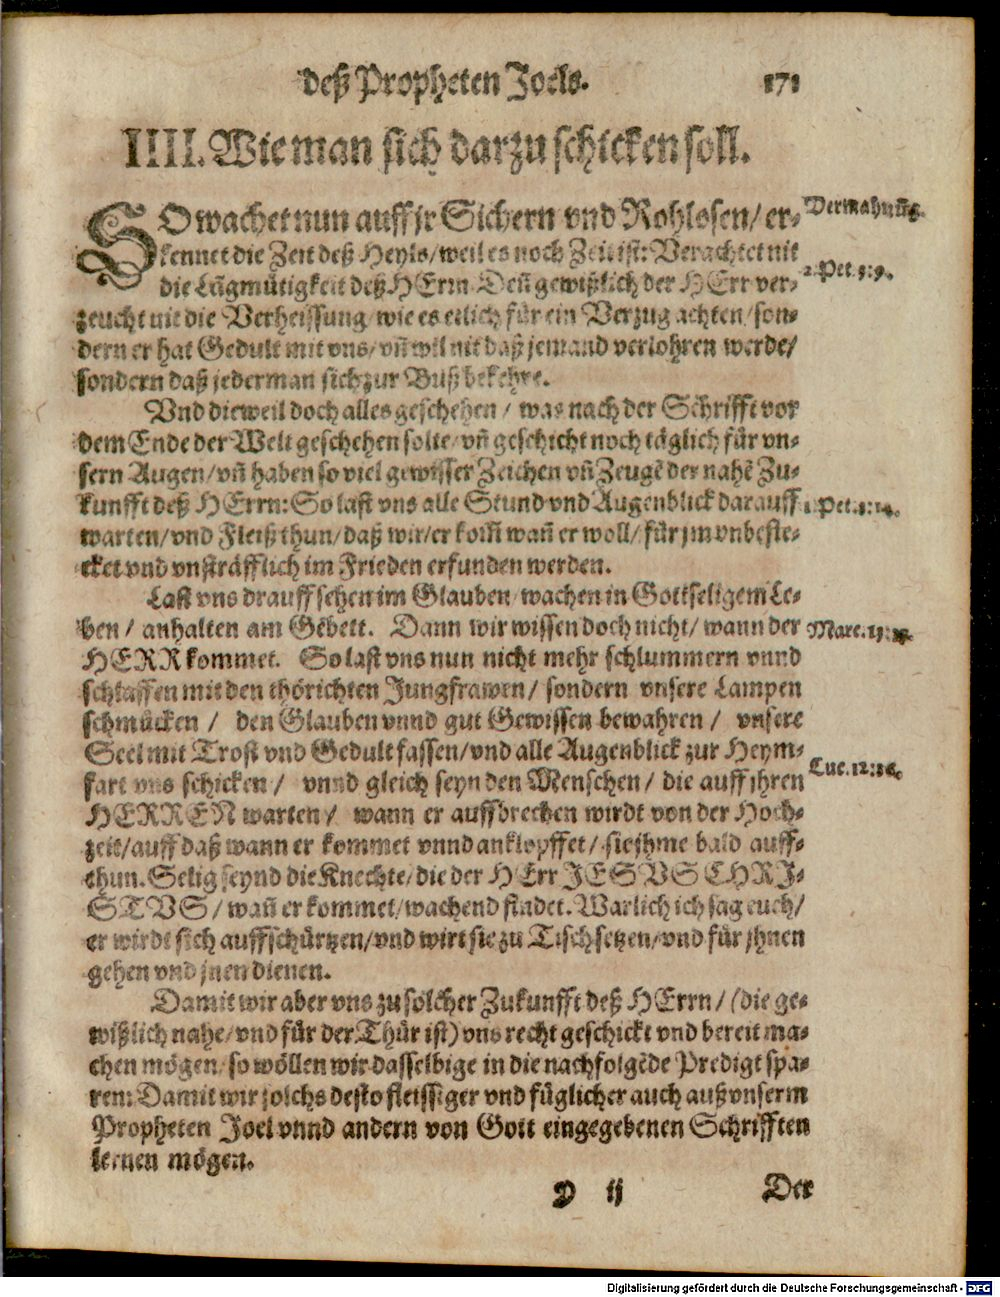 deß Propheten Joels. 171
IIII. Wie man sich darzu schicken soll.
SO wachet nun auff jr Sichern vnd Rohlosen/ er- Vermahnūg.
kennet die Zeit deß Heyls/ weil es noch Zeit ist: Verachtet nit
die Lāgmütigkeit deß HErrn Deñ gewißlich der HErr ver- 2. Pet. 3: 9.
zeucht nit die Verheissung/ wie es etlich für ein Verzug achten/ son-
dern er hat Gedult mit vns/ vñ wil nit daß jemand verlohren werde/
sondern daß jederman sich zur Buß bekehre.
Vnd dieweil doch alles geschehen/ was nach der Schrifft vor
dem Ende der Welt geschehen solte/ vñ geschicht noch täglich für vn-
sern Augen/ vñ haben so viel gewisser Zeichen vñ Zeugē der nahē Zu-
kunfft deß HErrn: So last vns alle Stund vnd Augenblick darauff Pet. : 14.
warten/ vnd Fleiß thun/ daß wir/ er kom̄ wañ er woll/ für jm vnbefle-
cket vnd vnsträfflich im Frieden erfunden werden.
Last vns drauff sehen im Glauben/ wachen in Gottseligem Le-
ben/ anhalten am Gebett. Dann wir wissen doch nicht/ wann der Marc. 13:
HERR kommet. So last vns nun nicht mehr schlummern vnnd
schlaffen mit den thörichten Jungfrawen/ sondern vnsere Lampen
schmücken/ den Glauben vnnd gut Gewissen bewahren/ vnsere
Seel mit Trost vnd Gedult fassen/ vnd alle Augenblick zur Heym-
fart vns schicken/ vnnd gleich seyn den Menschen/ die auff jhren Luc. 12: 36.
HERREN warten/ wann er auffbrechen wirdt von der Hoch-
zeit/ auff daß wann er kommet vnnd anklopffet/ sie jhme bald auff-
thun. Selig seynd die Knechte/ die der HErr JESVS CHRI-
STVS/ wañ er kommet/ wachend findet. Warlich ich sag euch/
er wirdt sich auffschürtzen/ vnd wirt sie zu Tisch setzen/ vnd für jhnen
gehen vnd jnen dienen.
Damit wir aber vns zu solcher Zukunfft deß HErrn/ (die ge-
wißlich nahe/ vnd für der Thür ist) vns recht geschickt vnd bereit ma-
chen mögen/ so wöllen wir dasselbige in die nachfolgēde Predigt spa-
ren: Damit wir solchs desto fleissiger vnd füglicher auch auß vnserm
Propheten Joel vnnd andern von Gott eingegebenen Schrifften
lernen mögen.
ij Der
Digitalisierung gefördert durch die Deutsche Forschungsgemeinschaft - DFG